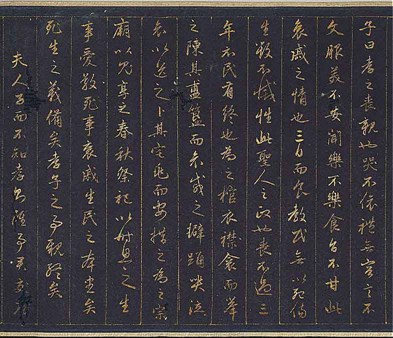 子曰孝子之喪親也哭不偯禮無容言不
文服美不安聞樂不樂食旨不甘此
哀戚之情也三日而食教民無以死傷
生毀不滅性此聖人之政也喪不過三
年示民有終也為之棺衣衾而舉
之陳其簠簋而哀戚之擗踊哭泣
哀以送之卜其宅兆而安措之為之宗
廟以鬼享之春秋祭祀以時思之生
事愛敬死事哀戚生民之本盡矣
死生之義備矣孝子之事親終矣
夫人子而不知孝